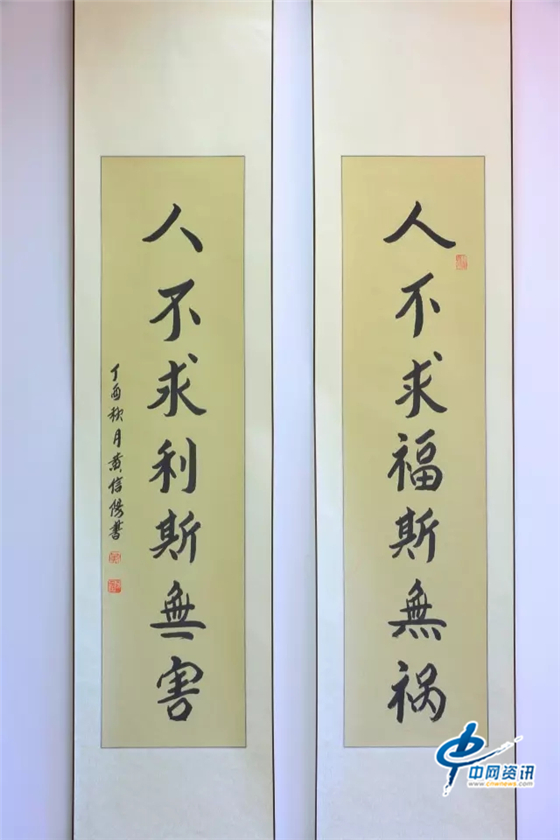 人不求福斯無祸
人不求利斯無害
丁酉秋月黄信阳書
中网资讯
www.cnwnews.com